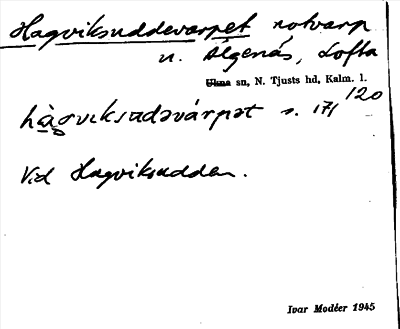 Hagviksuddevarpet notvarp
u. Älgenäs, Lofta
Ukna sn, N. Tjusts hd, Kalm. l.
hàgviksudəvárpət s. 171 120
Vid Hagviksudden.
Ivar Modéer 1945